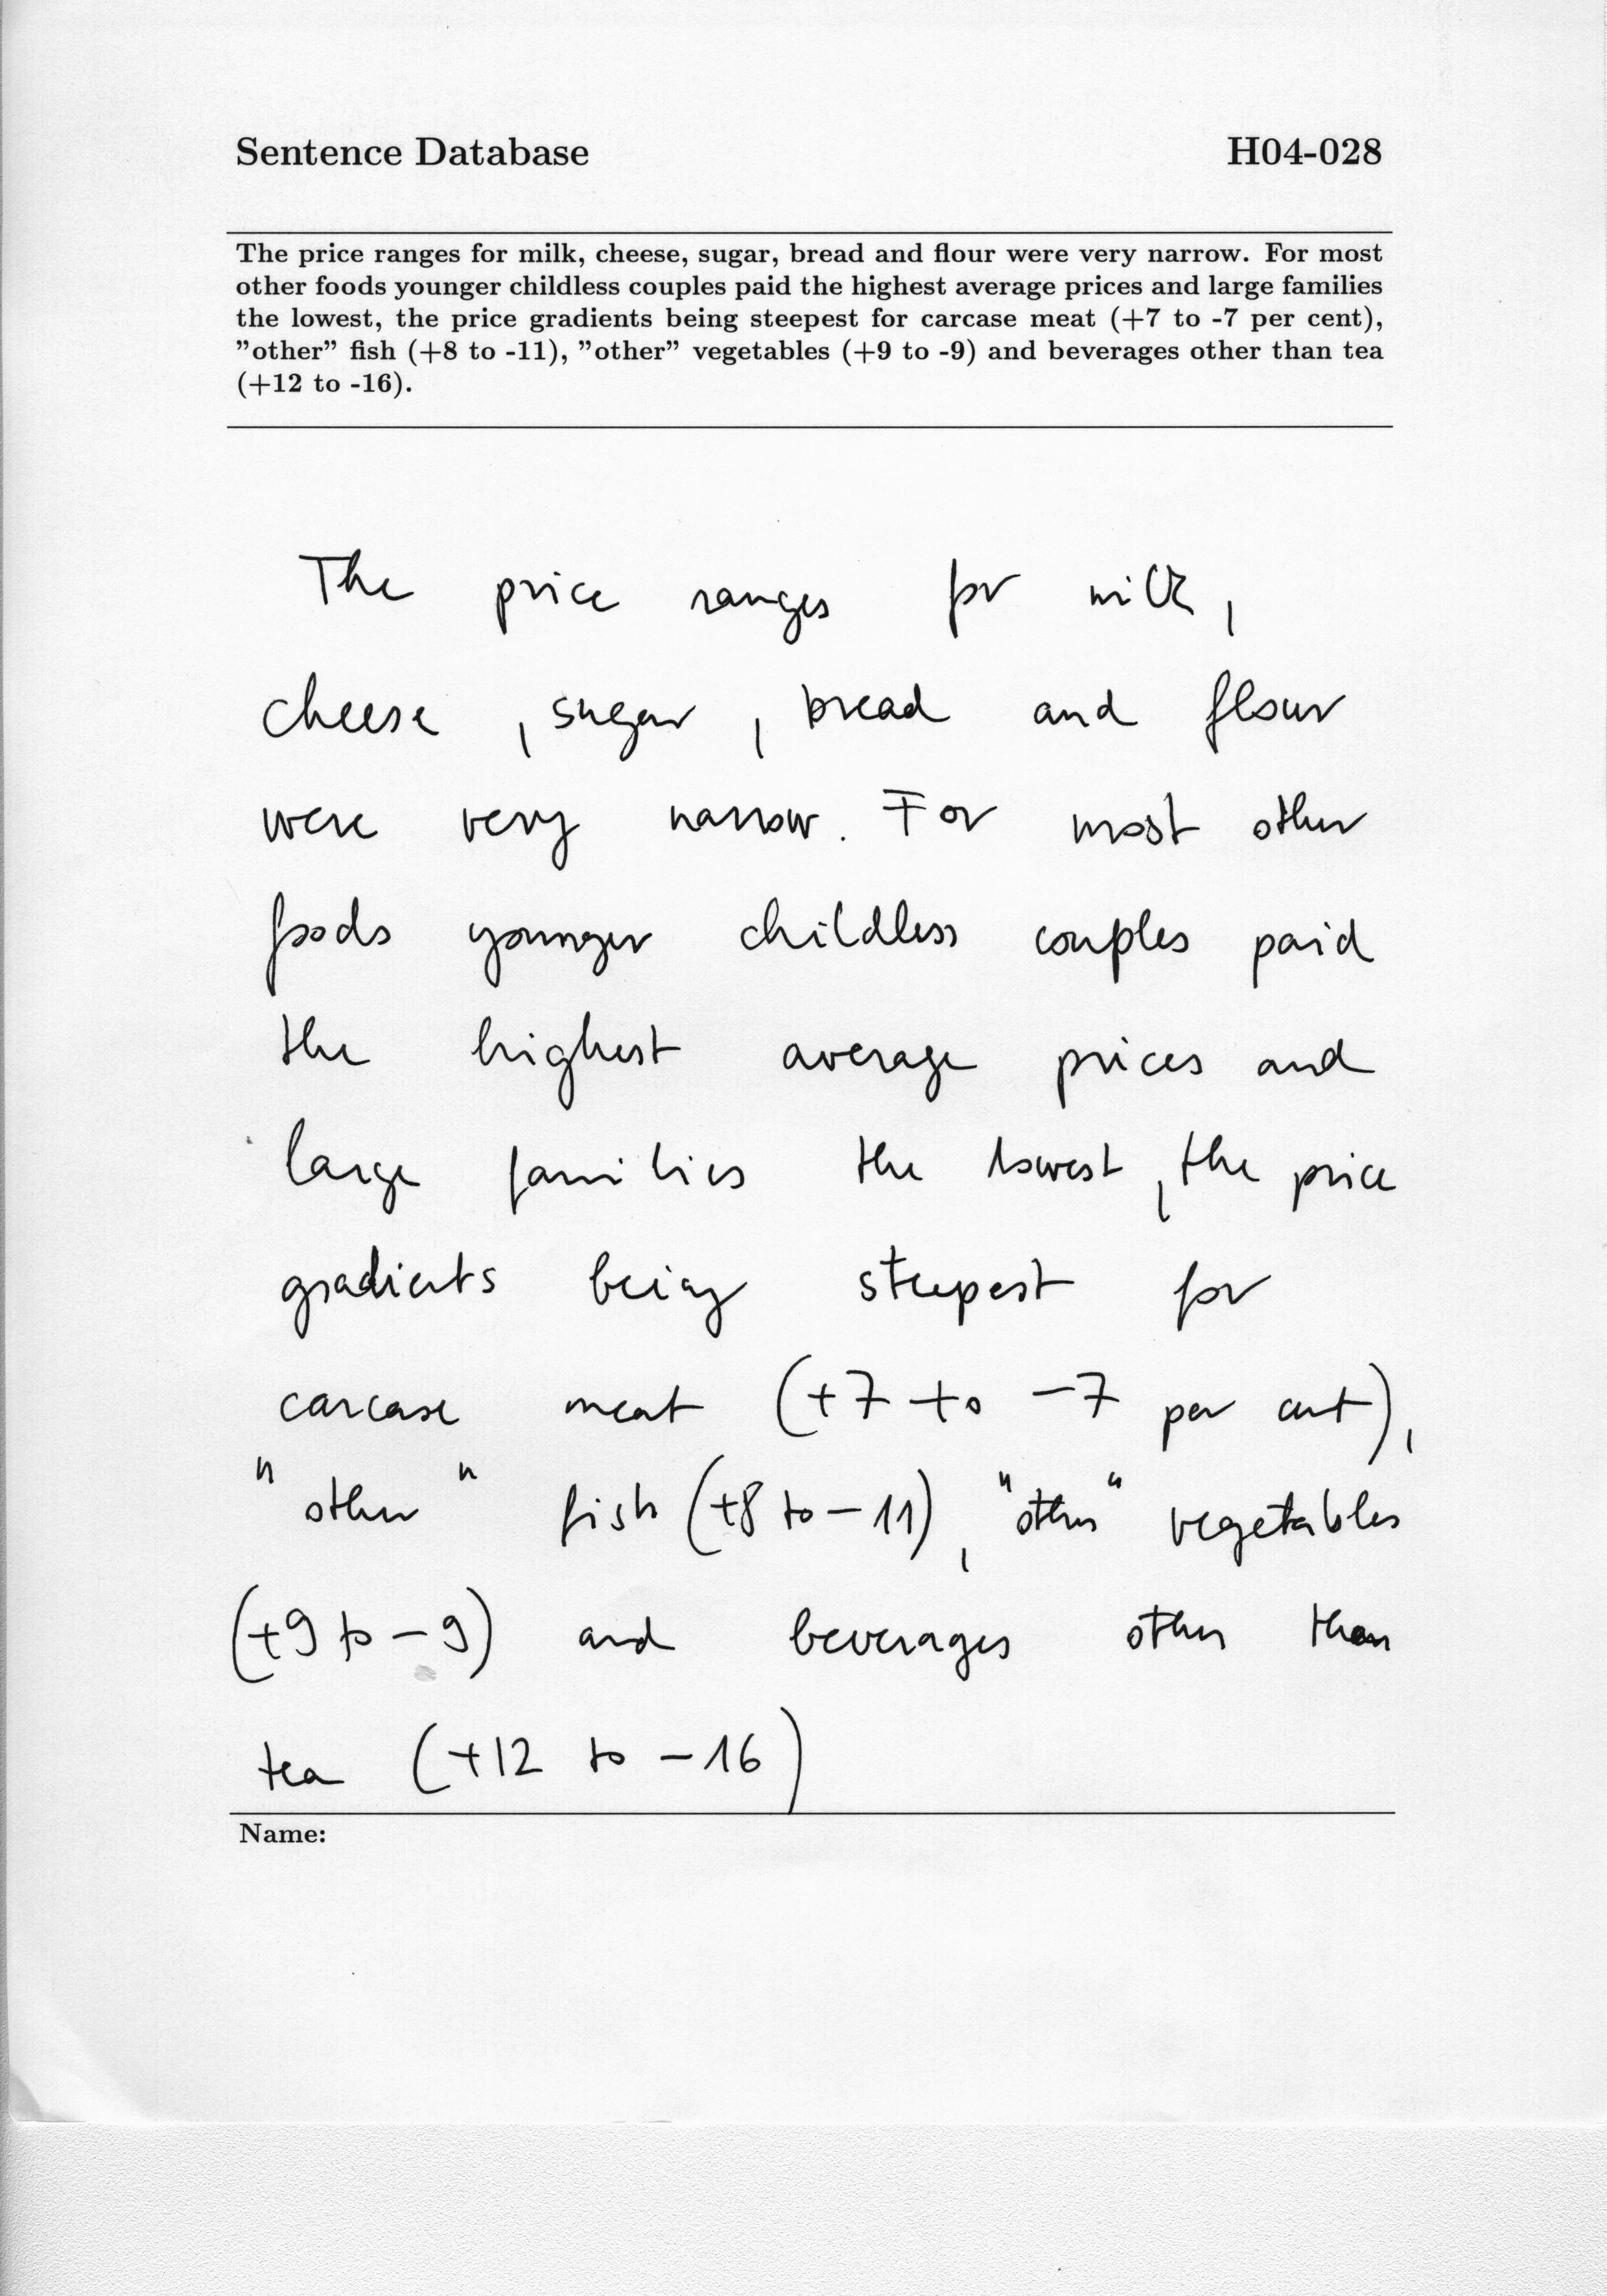 Sentence Database H04-028
The price ranges for milk, cheese, sugar, bread and flour were very narrow. For most
other foods younger childless couples paid the highest average prices and large families
the lowest, the price gradients being steepest for carcase meat (+7 to -7 per cent),
”other” fish (+8 to -11), ”other” vegetables (+9 to -9) and beverages other than tea
(+12 to -16).
The price ranges for milk,
cheese, sugar, bread and flour
were very narrow. For most other
foods younger childless couples paid
the highest average prices and
large families the lowest, the price
gradients being steepest for
carcase meat (+7 to -7 per cent),
"other" fish (+8 to -11), "other" vegetables
(+9 to -9) and beverages other than
tea (+12 to -16)
Name: